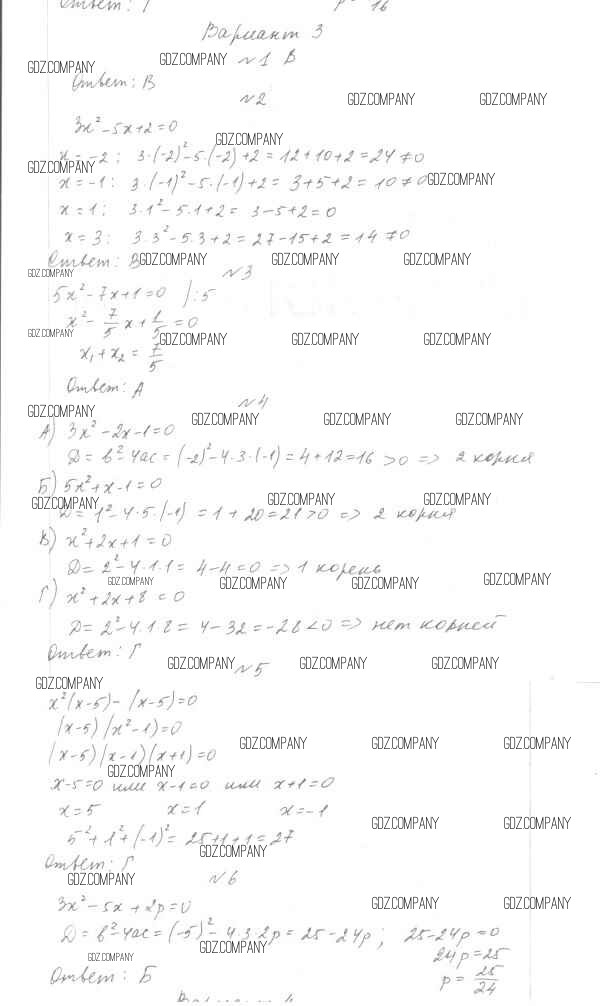 Ответ: Г p = 16
Вариант 3
GDZ.COMPANY GDZ.COMPANY №1 В
Ответ: В
№2 GDZ.COMPANY GDZ.COMPANY
3x² - 5x + 2 = 0
GDZ.COMPANY
x = -2: 3·(-2)² - 5·(-2) + 2 = 12 + 10 + 2 = 24 ≠ 0
GDZ.COMPANY
x = -1: 3·(-1)² - 5·(-1) + 2 = 3 + 5 + 2 = 10 ≠ 0 GDZ.COMPANY
x = 1: 3·1² - 5·1 + 2 = 3 - 5 + 2 = 0
x = 3: 3·3² - 5·3 + 2 = 27 - 15 + 2 = 14 ≠ 0
Ответ: В GDZ.COMPANY GDZ.COMPANY GDZ.COMPANY
GDZ.COMPANY №3
5x² - 7x + 1 = 0 |:5
x² - 7/5 x + 1/5 = 0
GDZ.COMPANY GDZ.COMPANY GDZ.COMPANY GDZ.COMPANY
x₁ + x₂ = 7/5
Ответ: А
№4
GDZ.COMPANY GDZ.COMPANY GDZ.COMPANY GDZ.COMPANY
А) 3x² - 2x - 1 = 0
D = b² - 4ac = (-2)² - 4·3·(-1) = 4 + 12 = 16 > 0 => 2 корня
Б) 5x² + x - 1 = 0
GDZ.COMPANY GDZ.COMPANY GDZ.COMPANY
D = 1² - 4·5·(-1) = 1 + 20 = 21 > 0 => 2 корня
В) x² + 2x + 1 = 0
D = 2² - 4·1·1 = 4 - 4 = 0 => 1 корень
GDZ.COMPANY GDZ.COMPANY GDZ.COMPANY GDZ.COMPANY
Г) x² + 2x + 8 = 0
D = 2² - 4·1·8 = 4 - 32 = -28 < 0 => нет корней
Ответ: Г
GDZ.COMPANY №5 GDZ.COMPANY GDZ.COMPANY
GDZ.COMPANY
x²(x - 5) - (x - 5) = 0
(x - 5)(x² - 1) = 0
GDZ.COMPANY GDZ.COMPANY GDZ.COMPANY
(x - 5)(x - 1)(x + 1) = 0
GDZ.COMPANY
x - 5 = 0 или x - 1 = 0 или x + 1 = 0
x = 5 x = 1 x = -1
GDZ.COMPANY GDZ.COMPANY
5² + 1² + (-1)² = 25 + 1 + 1 = 27
GDZ.COMPANY
Ответ: Г
GDZ.COMPANY №6
3x² - 5x + 2p = 0 GDZ.COMPANY GDZ.COMPANY
D = b² - 4ac = (-5)² - 4·3·2p = 25 - 24p; 25 - 24p = 0
GDZ.COMPANY GDZ.COMPANY 24p = 25
Ответ: Б p = 25/24